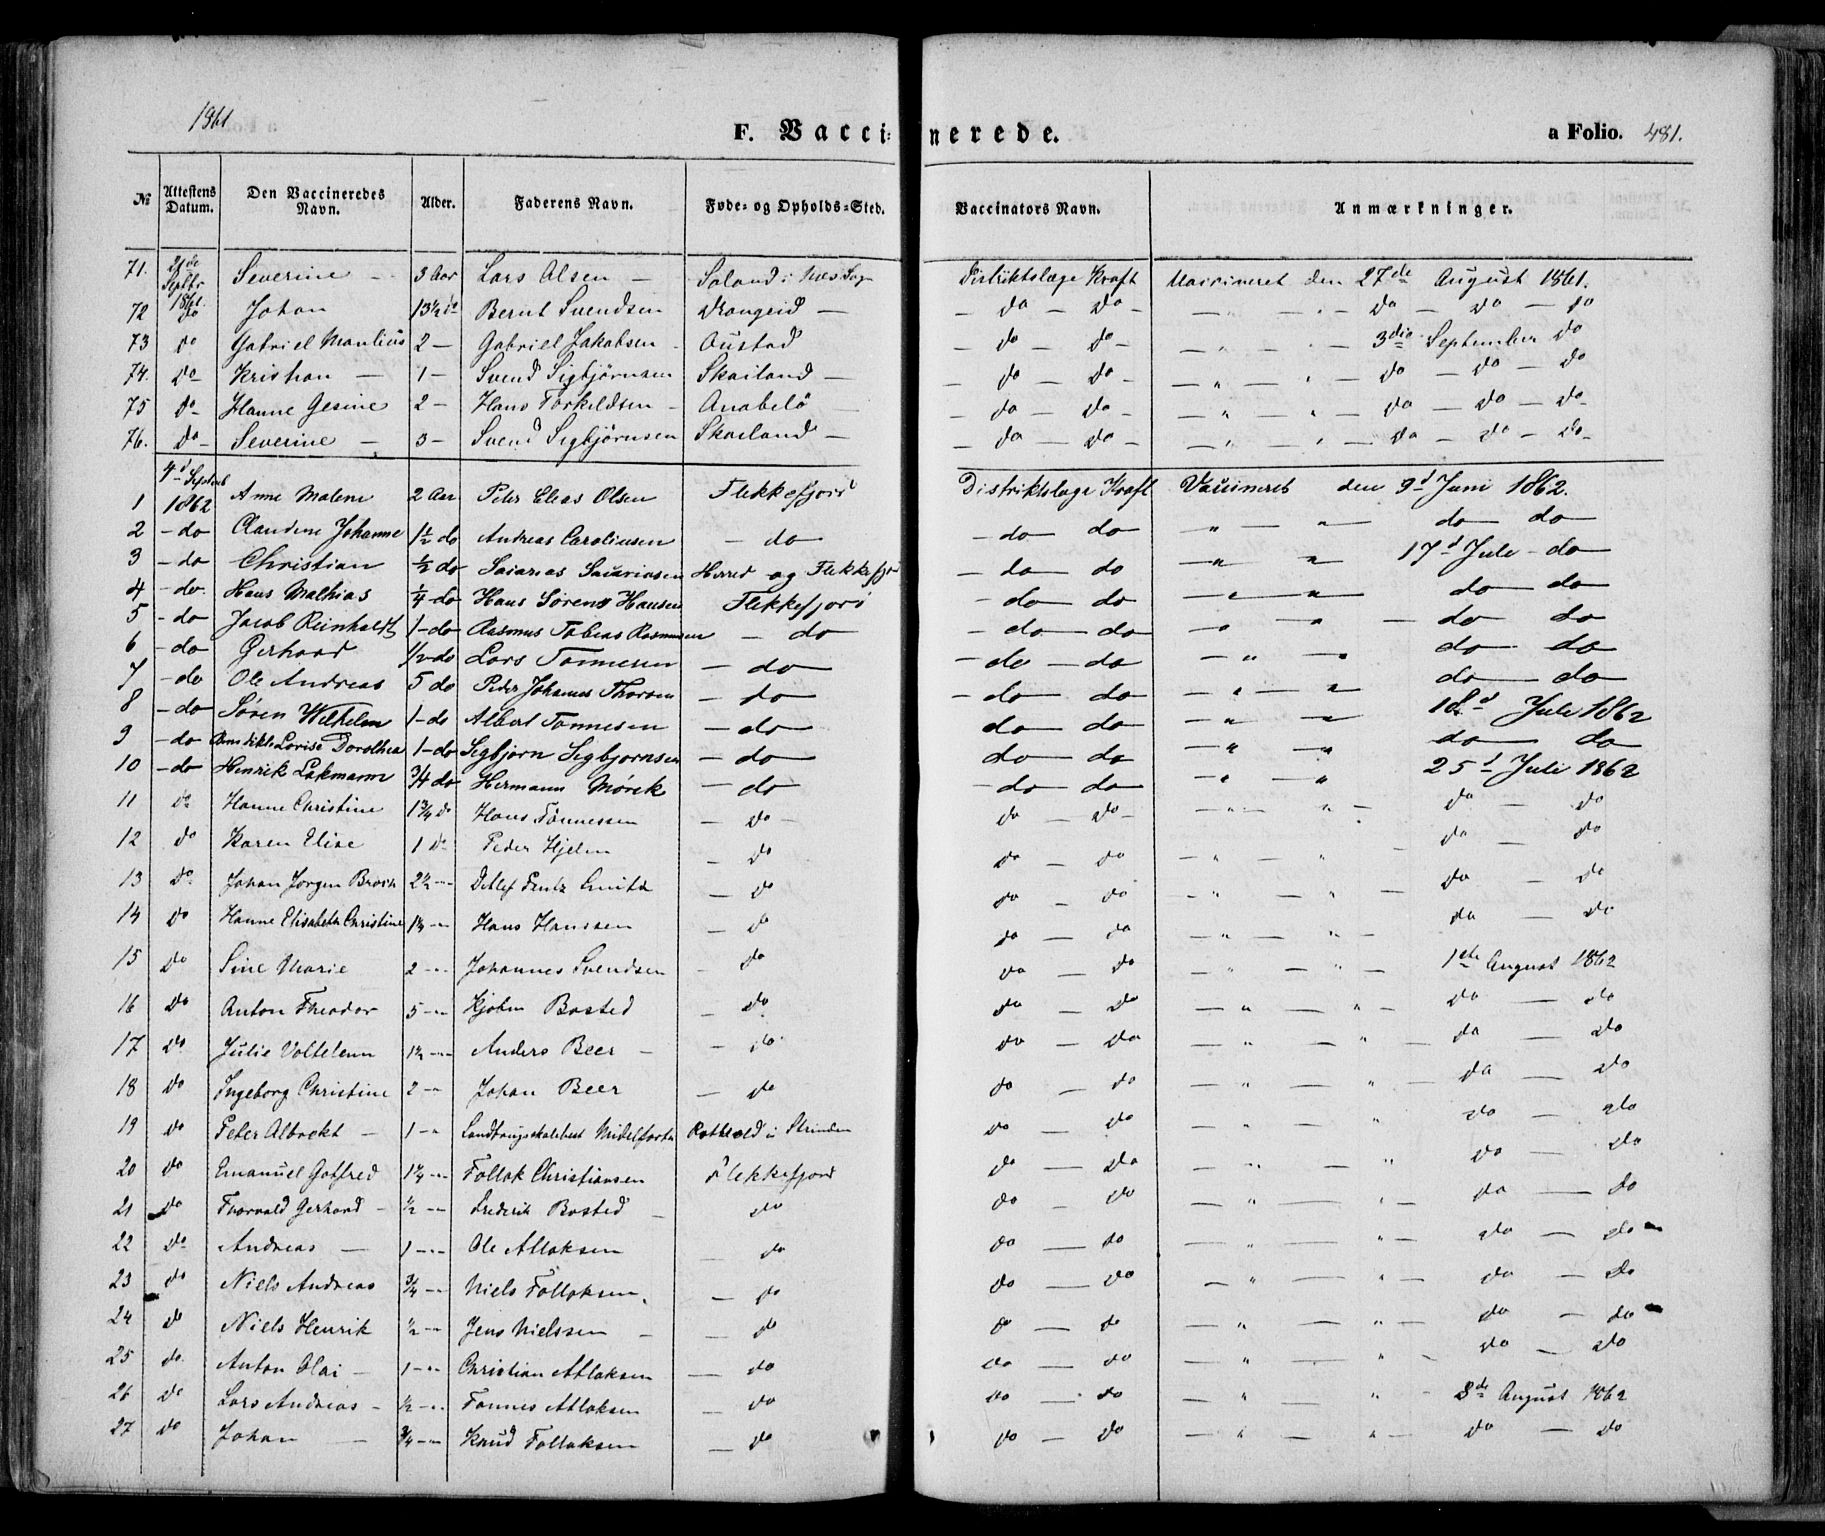 1861
F. Vaccinerede.
a Folio. 481.
№ Attestens Datum. Den Vaccineredes Navn. Alder. Faderens Navn. Føde- og Opholds-Sted. Vaccinators Navn. Anmærkninger.
71. 21de Septbr 1861. Severine - 3 Aar Lars Olsen - i Næs Sogn Distriktslæge Kraft Vaccineret den 27de August 1861.
72 do Johan 13½ do Bernt Svendsen Drangeid - - do - do - - " - " - do - do - do
73 do Gabriel Manlius 2 - Gabriel Jakobsen - Oustad - do - do - - " - " - 3die September do
74. do - Kristian - 1 - Svend Sigbjørnsen Skailand - - do - do - - " - " - do - do - do
75 do - Hanne Gesine 2 - Hans Torkildsen - Anabelø - do - do - - " - " - do - do - do -
76. do - Severine - 3 - Svend Sigbjørnsen Skailand - - do - do - - " - " - do - do - do -
1 4d Septemb 1862 Anne Malene 2 Aar Peter Elias Olsen Flekkefjord Distriktslæge Kraft Vaccineret den 9d Juni 1862.
2 - do Claudine Johanne 1½ do Andreas Caroliusen - do - do do " - " - do do
3 - do Christian ½ do Saiarias Saiariasen Herred og Flekkefjo - do do - " " 17d Juli - do
4 - do. Hans Mathias ¼ do Hans Sørens Hansen Flekkefjord - do do - " " do do
5 - do Jacob Reinholdt 1 - do Rasmus Tobias Rasmusen - do - do - do - " " - do do
6 - do Gerhard ½ - do Lars Tønnesen - do - do - do - " " do do
7 - do Ole Andreas 5 do Peder Johannes Thorsen - do - do do - " " do do
8 - do Søren Wilhelm 1 - do Albert Tønnesen - do do do - " " 18d Juli 1862
9 - do Lovise Dorothea 1 - do Sigbjørn Sigbjørnsen - do do do - " " do do
10 - do Henrik Lakmann ¾ do Hermann Mørck - do - do do - " " 25d Juli 1862
11 do Hanne Christine 1¾ do Hans Tønnessen - do - do - do - - " - " - do - do
12 do Karen Elise 1 do Peder Hjelm - do do - do - " - " do - do
13 do Johan Jørgen Broch 2½ - " - Detlef Smith - do do - do - " - " - do - do
14 do Hanne Elisabeth Christine 1¾ - " - Hans Hanssen - do do - do - " - " - do - do
15 do Sine Marie 2 - " - Johannes Svendsen - do do - do - " - " - 1ste August 1862
16 do Anton Theodor 5 - " - Kjøben Bosted - do do - do - " - " - do - do
17 do Julie 1½ - " - Anders Beer - - do do - do - " - " - do - do
18 do Ingeborg Christine 2 - " Johan Beer - do do - do - " - " - do - do
19 do Peter Albrekt - 1 - " i Strinden do - do - " - " do - do
20 do Emanuel Gotfred 1¼ - " - Tollak Christiansen Flekkefjord do - do - " - " do - do
21 do Thorvald Gerhard - ½ - " - Frederik Bosted - do do - do - " - " do - do
22 do Andreas - 1 - " - Ole Atlaksen - do do - do - " - " - do - do
23 do Niels Andreas ¾ - " Niels Tollaksen. - do do - do - " - " do - do
24 do Niels Henrik ½ - " Jens Nielssen - - do do - do - " - " - do - do
25 do. Anton Olai - 1 - " - Christian Atlaksen - do do - do - " " - do - do
26 do Lars Andreas - ½ - " - Tønnes Atlaksen - do do - do - " " - 8de August 1862
27 do Johan - ¾ - " Knud Tollaksen - do do - do - " - " - do - do